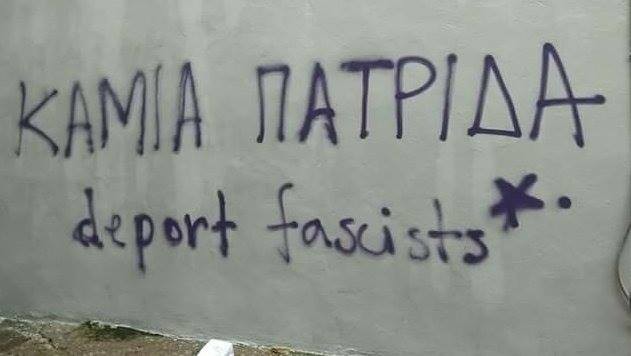 ΚΑΜΙΑ ΠΑΤΡΙΔΑ
deport fascists*.